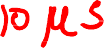 10 μs